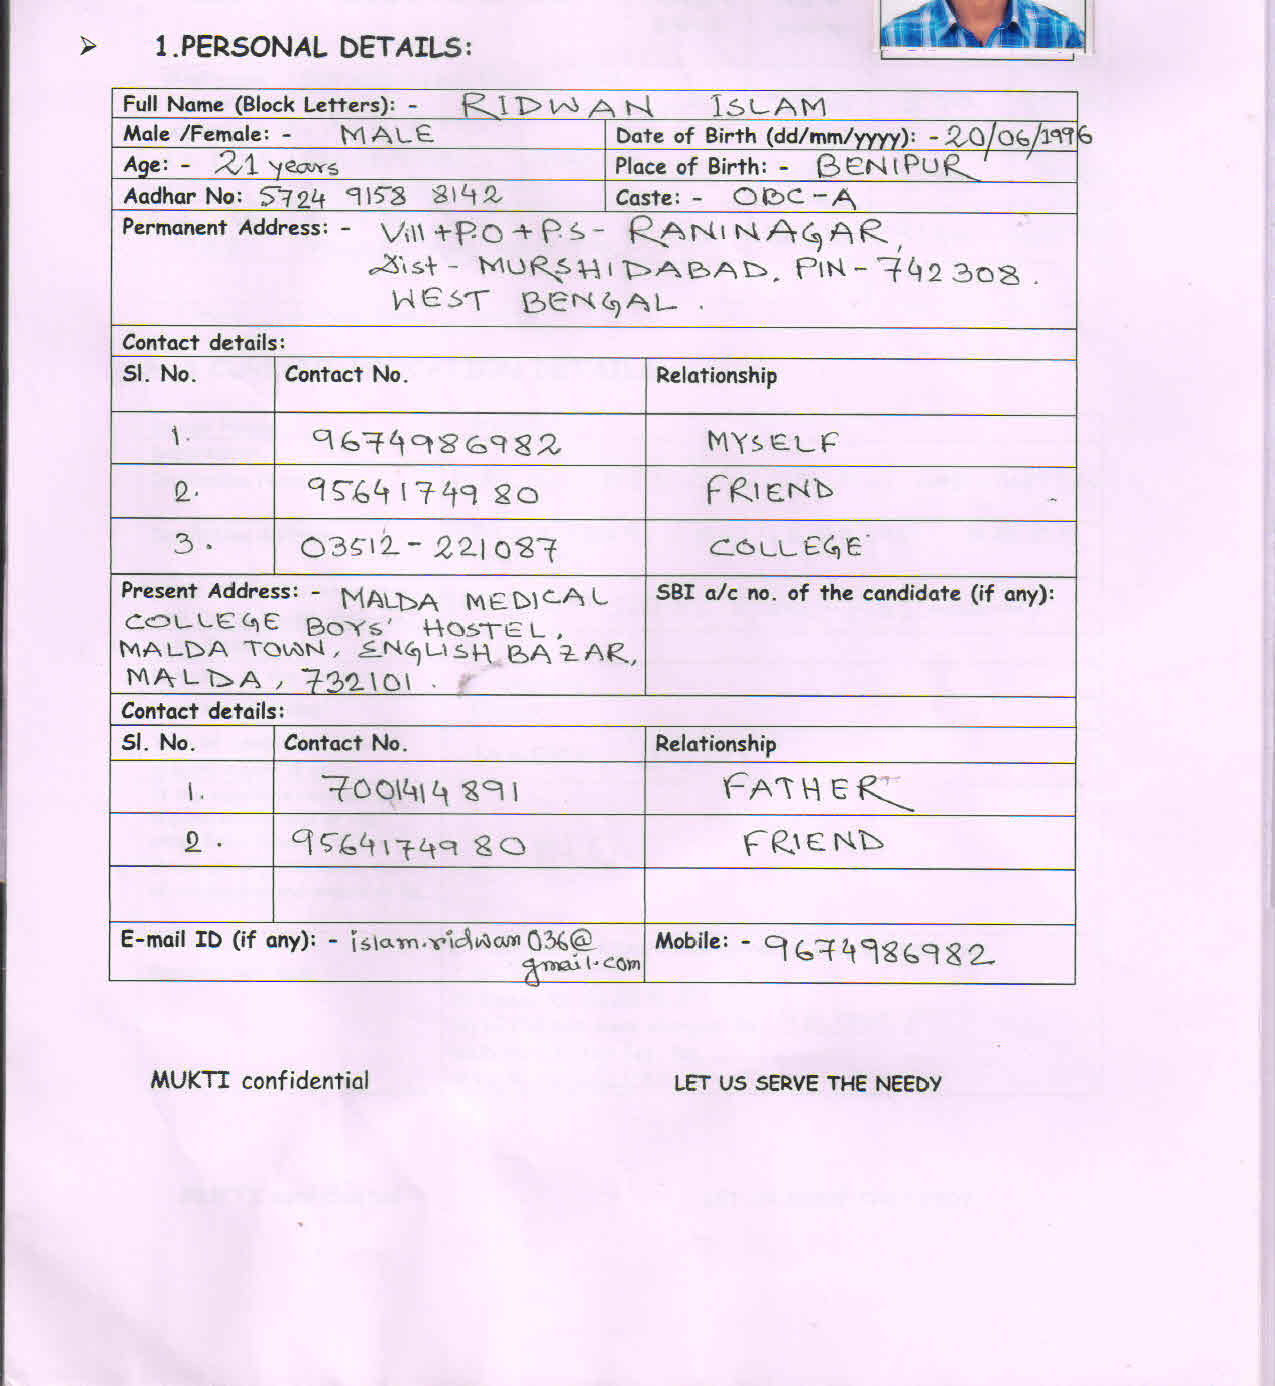 ➢ 1.PERSONAL DETAILS:
Full Name (Block Letters): - RIDWAN ISLAM
Male /Female: - MALE Date of Birth (dd/mm/yyyy): - 20/06/1996
Age: - 21 years Place of Birth: - BENIPUR
Aadhar No: 5724 9158 8142 Caste: - OBC-A
Permanent Address: - Vill+P.O+P.S- RANINAGAR,
Dist- MURSHIDABAD, PIN-742308.
WEST BENGAL.
Contact details:
Sl. No. Contact No. Relationship
1. 9674986982 MYSELF
2. 9564174980 FRIEND
3. 03512-221087 COLLEGE
Present Address: - MALDA MEDICAL SBI a/c no. of the candidate (if any):
COLLEGE BOYS' HOSTEL,
MALDA TOWN, ENGLISH BAZAR,
MALDA, 732101.
Contact details:
Sl. No. Contact No. Relationship
1. 7001414891 FATHER
2. 9564174980 FRIEND
E-mail ID (if any): - islam.ridwan036@ Mobile: - 9674986982
gmail.com
MUKTI confidential LET US SERVE THE NEEDY